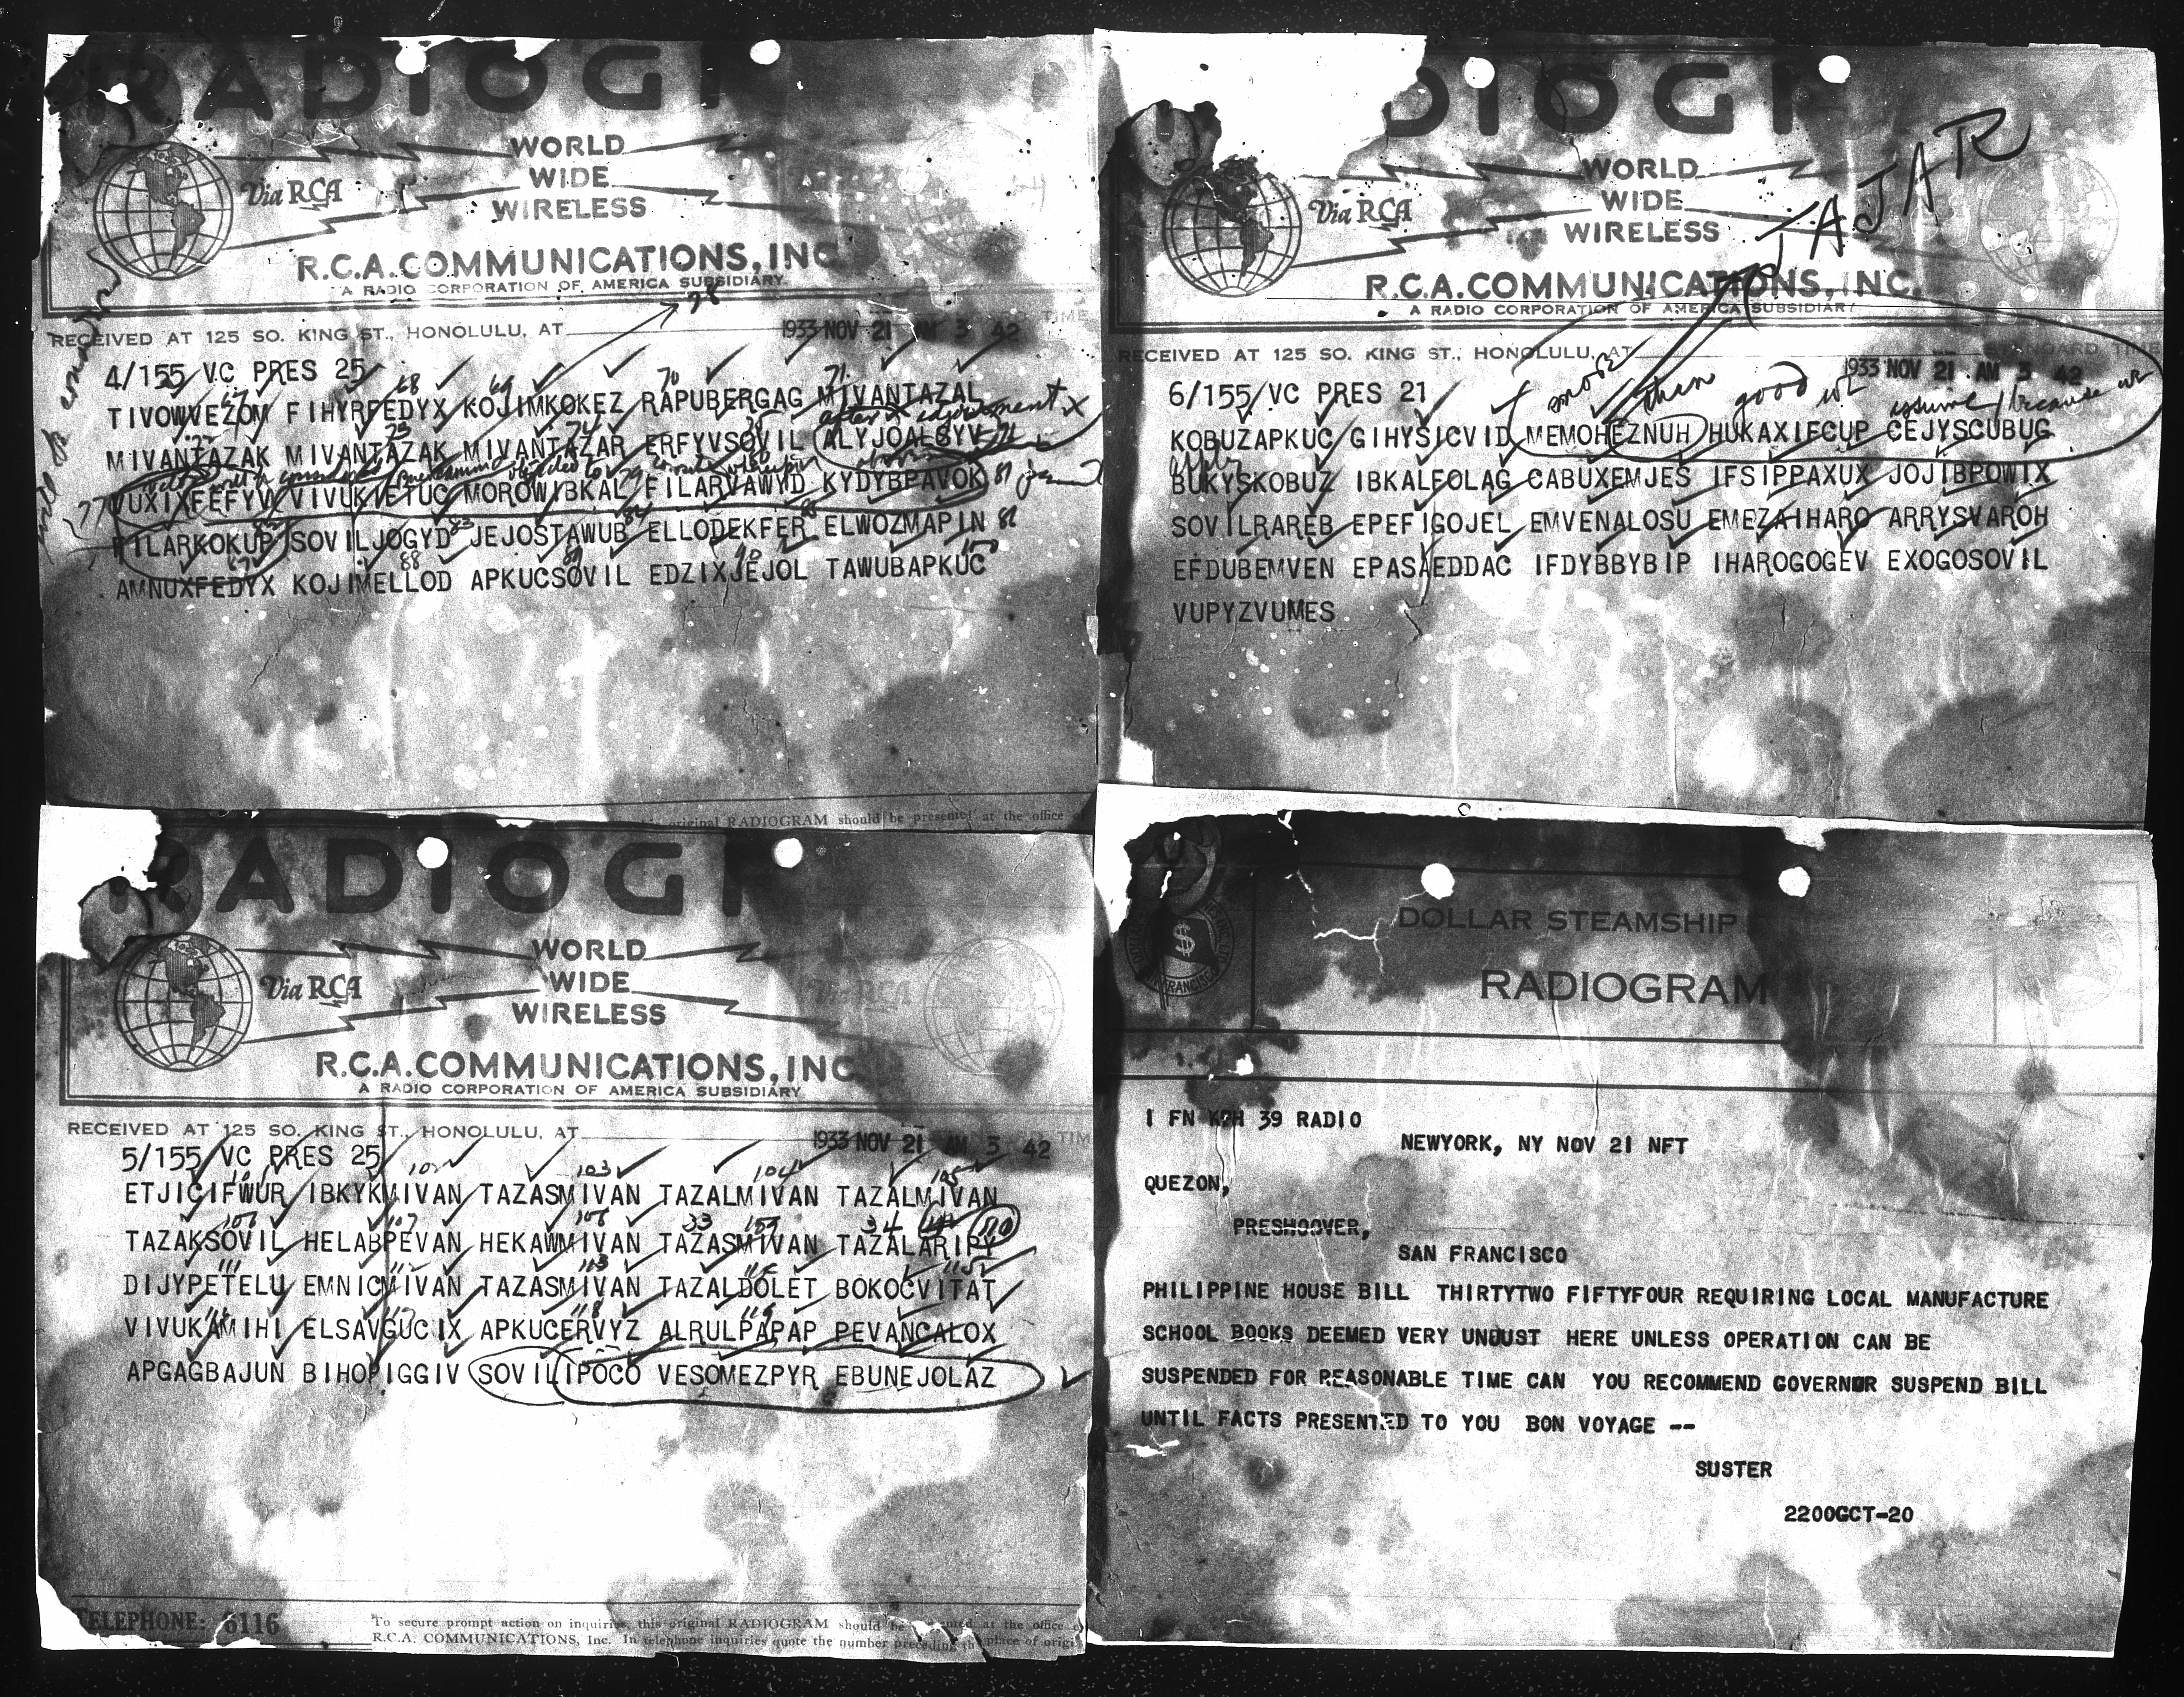 RADIOGR
WORLD
WIDE
WIRELESS
Via RCA
R.C.A. COMMUNICATIONS, INC.
A RADIO CORPORATION OF AMERICA SUBSIDIARY
RECEIVED AT 125 SO. KING ST., HONOLULU, AT 1933 NOV 21 AM 3 42
4/155 VC PRES 25
67 68 69 70 71
TIVOWVEZOM FIHYRFEDYX KOJIMKOKEZ RAPUBERGAG MIVANTAZAL
MIVANTAZAK MIVANTAZAK MIVANTAZAR ERFYVSOVIL ALYJOALGYV
VUXIXFEFYV VIVUKIETUC MOROWIBKAL FILARVAWYD KYDYBPAVOK 81
FILARKOKUP SOVILJOGYD JEJOSTAWUB ELLODEKFER ELWOZMAPIN 86
AMNUXFEDYX KOJIMELLOD APKUCSOVIL EDZIXJEJOL TAWUBAPKUC
original RADIOGRAM should be presented at the office
DIOGR
JAJAR
WORLD
WIDE
WIRELESS
Via RCA
R.C.A. COMMUNICATIONS, INC.
A RADIO CORPORATION OF AMERICA SUBSIDIARY
RECEIVED AT 125 SO. KING ST., HONOLULU, AT STANDARD TIME
1933 NOV 21 AM 3 42
6/155 VC PRES 21
more than good assume because
KOBUZAPKUC GIHYSICVID MEMOHEZNUH HUKAXIFCUP CEJYSCUBUG
BUKYSKOBUZ IBKALFOLAG CABUXEMJES IFSIPPAXUX JOJIBPOWIX
SOVILRAREB EPEFIGOJEL EMVENALOSU EMEZAIHARO ARRYSVAROH
EFDUBEMVEN EPASAEDDAC IFDYBBYBIP IHAROGOGEV EXOGOSOVIL
VUPYZVUMES
RADIOGR
WORLD
WIDE
WIRELESS
Via RCA
R.C.A. COMMUNICATIONS, INC
A RADIO CORPORATION OF AMERICA SUBSIDIARY
RECEIVED AT 125 SO. KING ST., HONOLULU, AT 1933 NOV 21 AM 3 42
5/155 VC PRES 25
ETJICIFWUR IBKYKMIVAN TAZASMIVAN TAZALMIVAN TAZALMIVAN
TAZAKSOVIL HELABPEVAN HEKAWMIVAN TAZASMIVAN TAZALARIPY
DIJYPETELU EMNICMIVAN TAZASMIVAN TAZALDOLET BOKOCVITAT
VIVUKAMIHI ELSAVGUCIX APKUCERVYZ ALRULPAPAP PEVANCALOX
APGAGBAJUN BIHOPIGGIV SOVILIPOCO VESOMEZPYR EBUNEJOLAZ
TELEPHONE: 6116
To secure prompt action on inquiries, this original RADIOGRAM should be presented at the office
R.C.A. COMMUNICATIONS, Inc. In telephone inquiries quote the number preceding the place of origin
DOLLAR STEAMSHIP
RADIOGRAM
1 FN KPH 39 RADIO
NEWYORK, NY NOV 21 NFT
QUEZON,
PRESHOOVER,
SAN FRANCISCO
PHILIPPINE HOUSE BILL THIRTYTWO FIFTYFOUR REQUIRING LOCAL MANUFACTURE
SCHOOL BOOKS DEEMED VERY UNJUST HERE UNLESS OPERATION CAN BE
SUSPENDED FOR REASONABLE TIME CAN YOU RECOMMEND GOVERNOR SUSPEND BILL
UNTIL FACTS PRESENTED TO YOU BON VOYAGE --
SUSTER
2200GCT-20